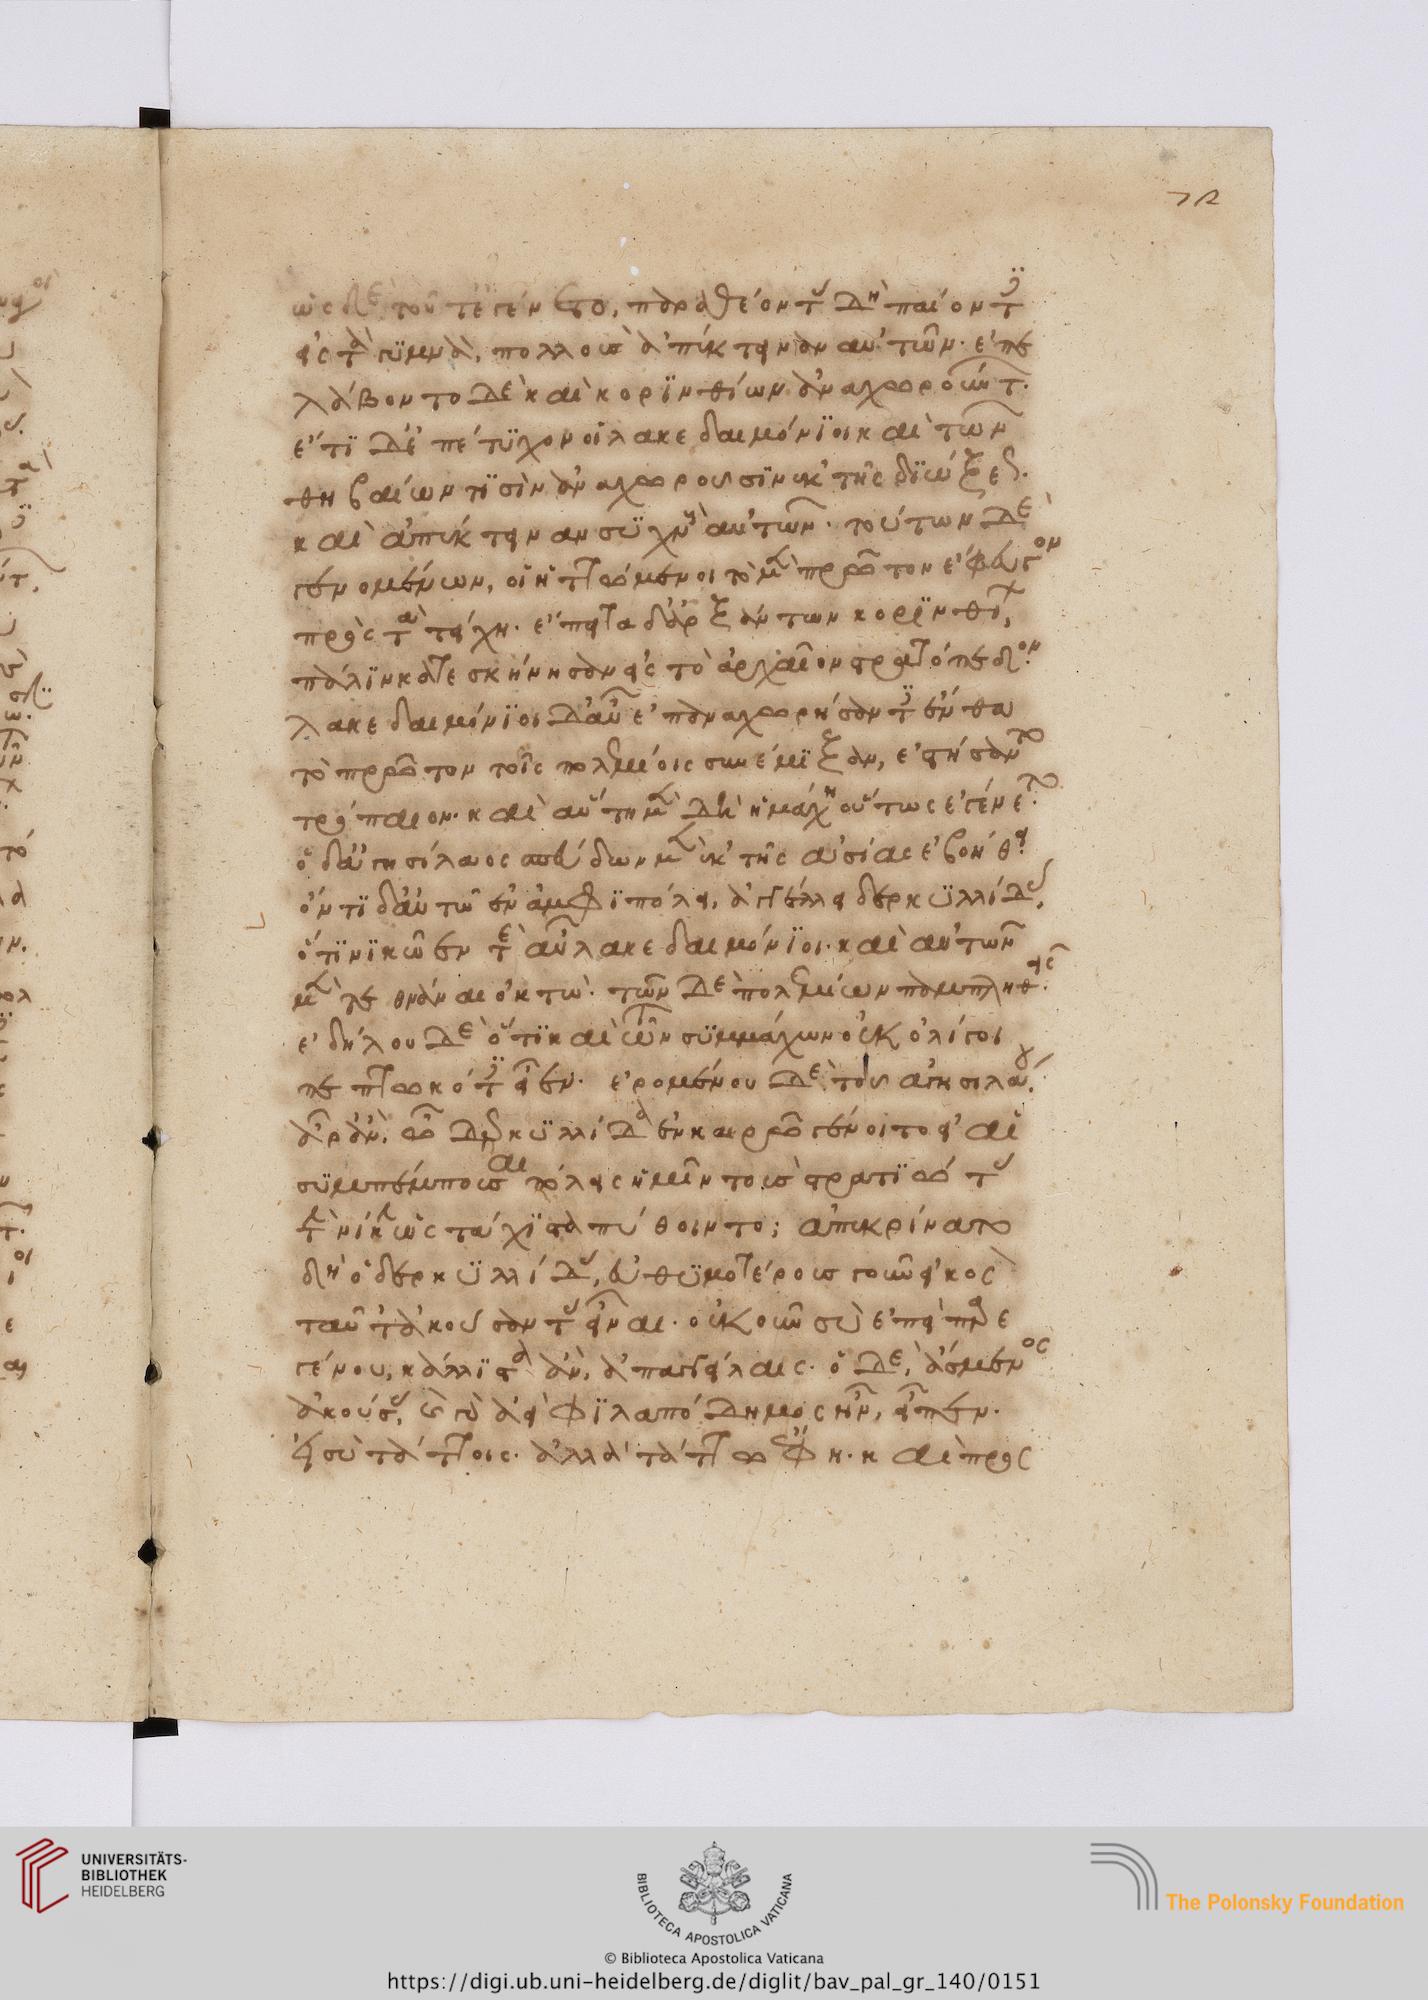 ὡς δὲ τοῦτ' ἐγένετο, παραθέοντας δὴ παίοντες
εἰς τὰ γυμνὰ, πολλοὺς ἀπέκτειναν αὐτῶν· ἐπε
λάβοντο δὲ καὶ κορϊνθίων ἀναχωρούντων·
ἔτϊ δ' ἐπέτϋχον οἱ λακεδαιμόνϊοι καὶ τῶν
θηβαίων τϊσὶν ἀναχωροῦσϊν ἐκ τῆς δϊώξεως·
καὶ ἀπέκτειναν σϋχνοὺς αὐτῶν· τούτων δὲ
γενομένων, οἱ ἡττώμενοι τὸ μὲν πρῶτον ἔφευγον
πρὸς τὰ τείχη· ἔπειτα δ' εἰρξάντων κορϊνθίων,
πάλϊν κατεσκήνησαν εἰς τὸ ἀρχαῖον στρατόπεδον·
λακεδαιμόνϊοι δ' αὖ ἐπαναχωρήσαντες ἔνθα
τὸ πρῶτον τοῖς πολεμίοις συνέμϊξαν, ἐστήσαντο
τρόπαιον· καὶ αὕτη μὲν δὴ ἡ μάχη οὕτως ἐγένετο·
ὁ δ' ἀγησίλαος σπεύδων μὲν ἐκ τῆς ἀσίας ἐβοήθει·
ὄντϊ δ' αὐτῷ ἐν ἀμφϊπόλει, ἀγγέλλει δερκϋλλίδας,
ὅτϊ νϊκῷέν τε αὖ λακεδαιμόνϊοι· καὶ αὐτῶν
μὲν τεθνάναι ὀκτὼ· τῶν δὲ πολεμίων παμπληθεῖς·
ἐδήλου δὲ ὅτϊ καὶ τῶν σϋμμάχων οὐκ ὀλίγοι
πεπτωκότες εἶεν· ἐρομένου δὲ τοῦ ἀγησιλάου·
ἆρ' ἂν, ὦ δερκϋλλίδα ἐν καιρῷ γένοιτο εἰ αἱ
σϋμπέμπουσαι πόλεις ἡμῖν τοὺς στρατϊώτας
τὴν νίκην ὡς τάχϊστα πύθοιντο; ἀπεκρίνατο
δὴ ὁ δερκϋλλίδας, εὐθϋμοτέρους γοῦν εἰκὸς
ταῦτ' ἀκούσαντας εἶναι· οὐκοῦν σὺ ἐπεὶ παρε
γένου, κάλλϊστα ἂν, ἀπαγγείλαις· ὁ δὲ, ἄσμενος
ἀκούσας, καὶ γὰρ ἀεὶ φϊλαπόδημος ἦν, εἶπεν·
εἰ σὺ τάττοις· ἀλλὰ τάττω ἔφη· καὶ πρὸς